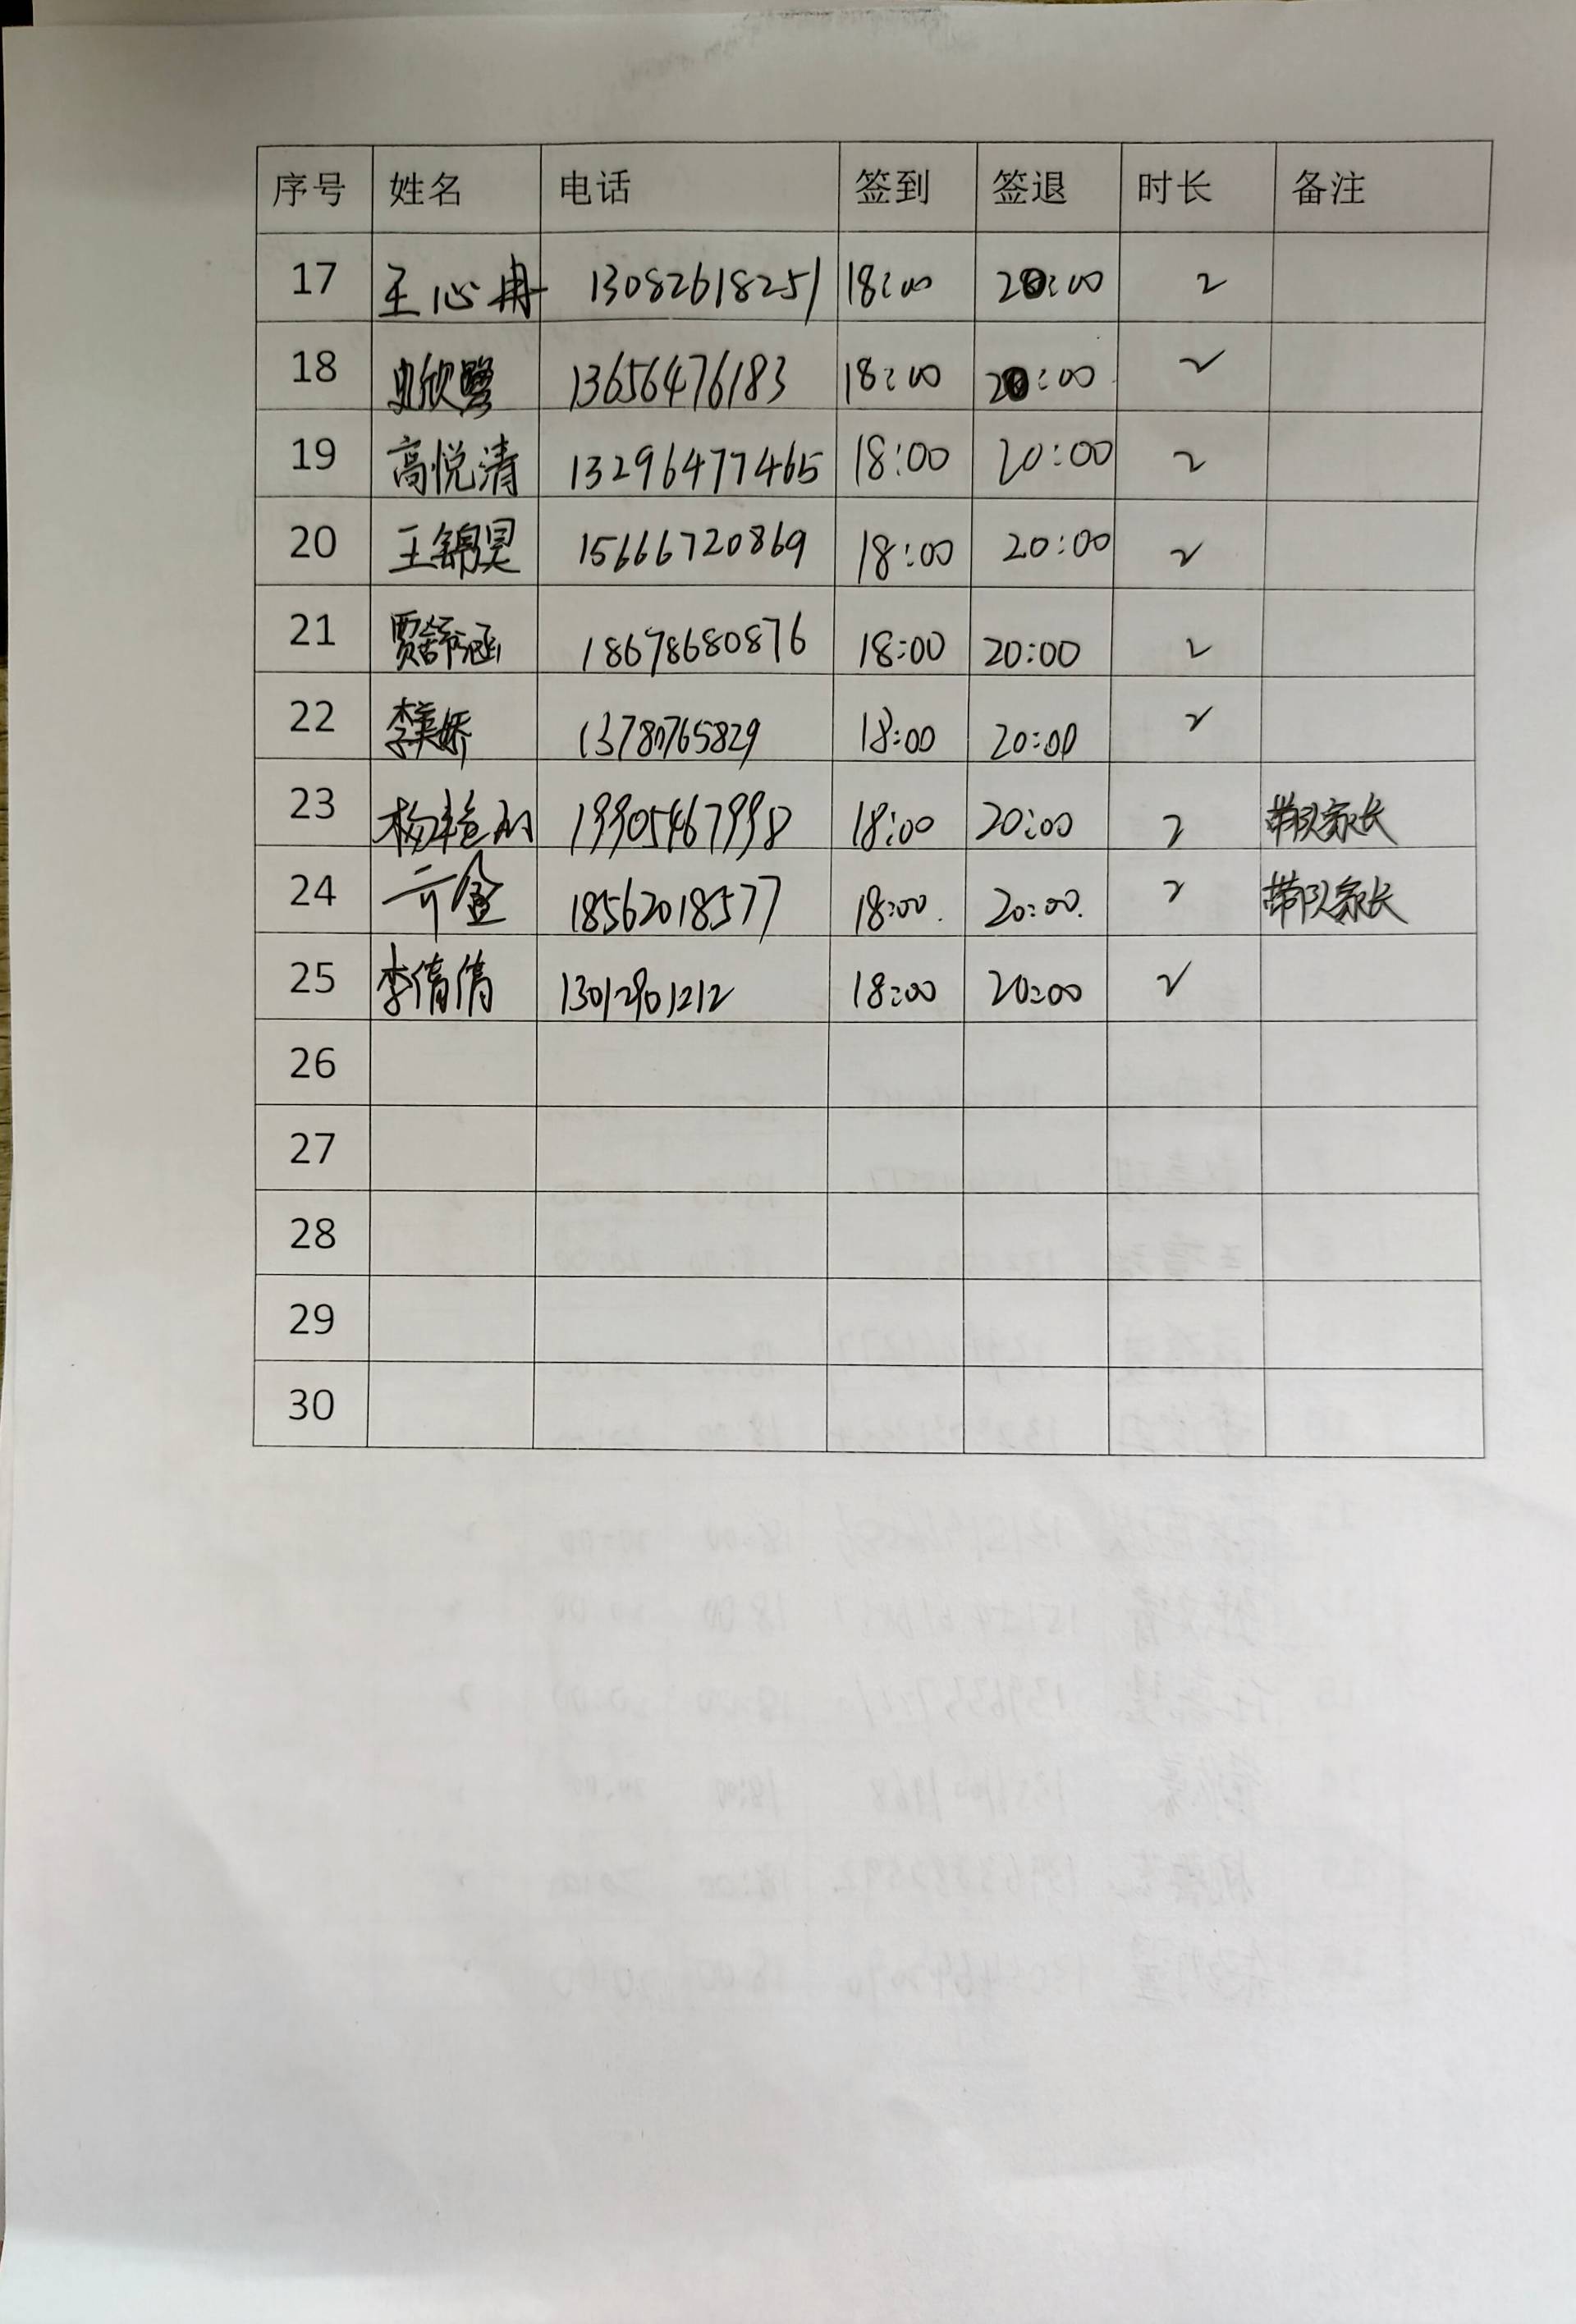 序号 姓名 电话 签到 签退 时长 备注
17 王心冉 13082618251 18:00 20:00 2
18 欣 13656476183 18:00 20:00 2
19 高悦清 13296477465 18:00 20:00 2
20 王锦昊 15666720869 18:00 20:00 2
21 贾舒涵 18678680876 18:00 20:00 2
22 李美娇 13780765829 18:00 20:00 2
23 杨艳 19905467998 18:00 20:00 2 带队家长
24 18562018577 18:00 20:00 2 带队家长
25 李倩倩 13012901212 18:00 20:00 2
26
27
28
29
30